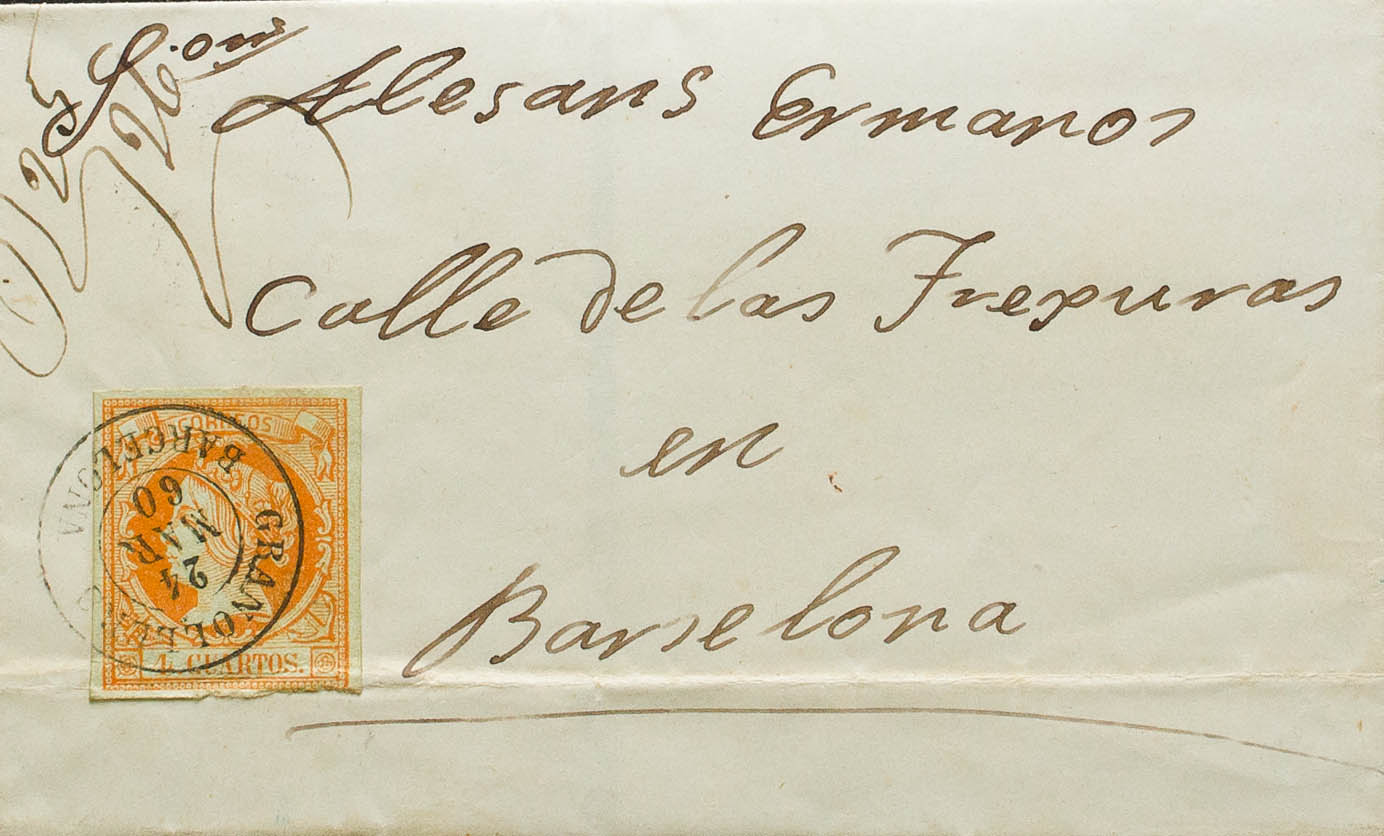 Sres Alesans Ermanos
Calle de las Frexuras
en
Barselona
CORREOS
4 CUARTOS.
GRANOLLERS
BARCELONA
24
MAR
60